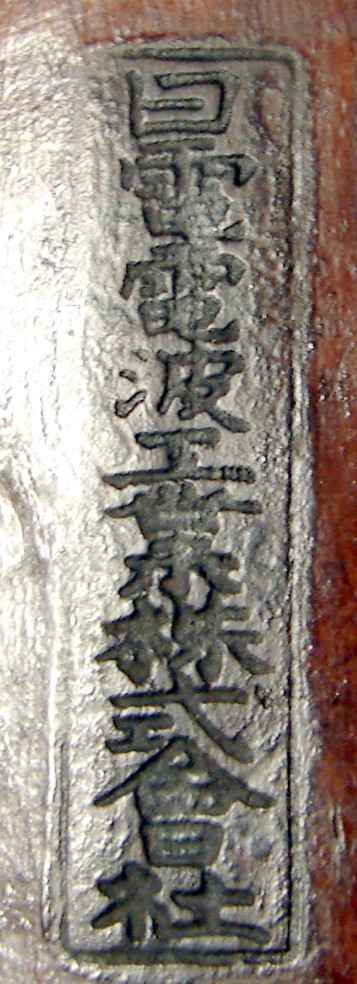 日電電波工業株式會社